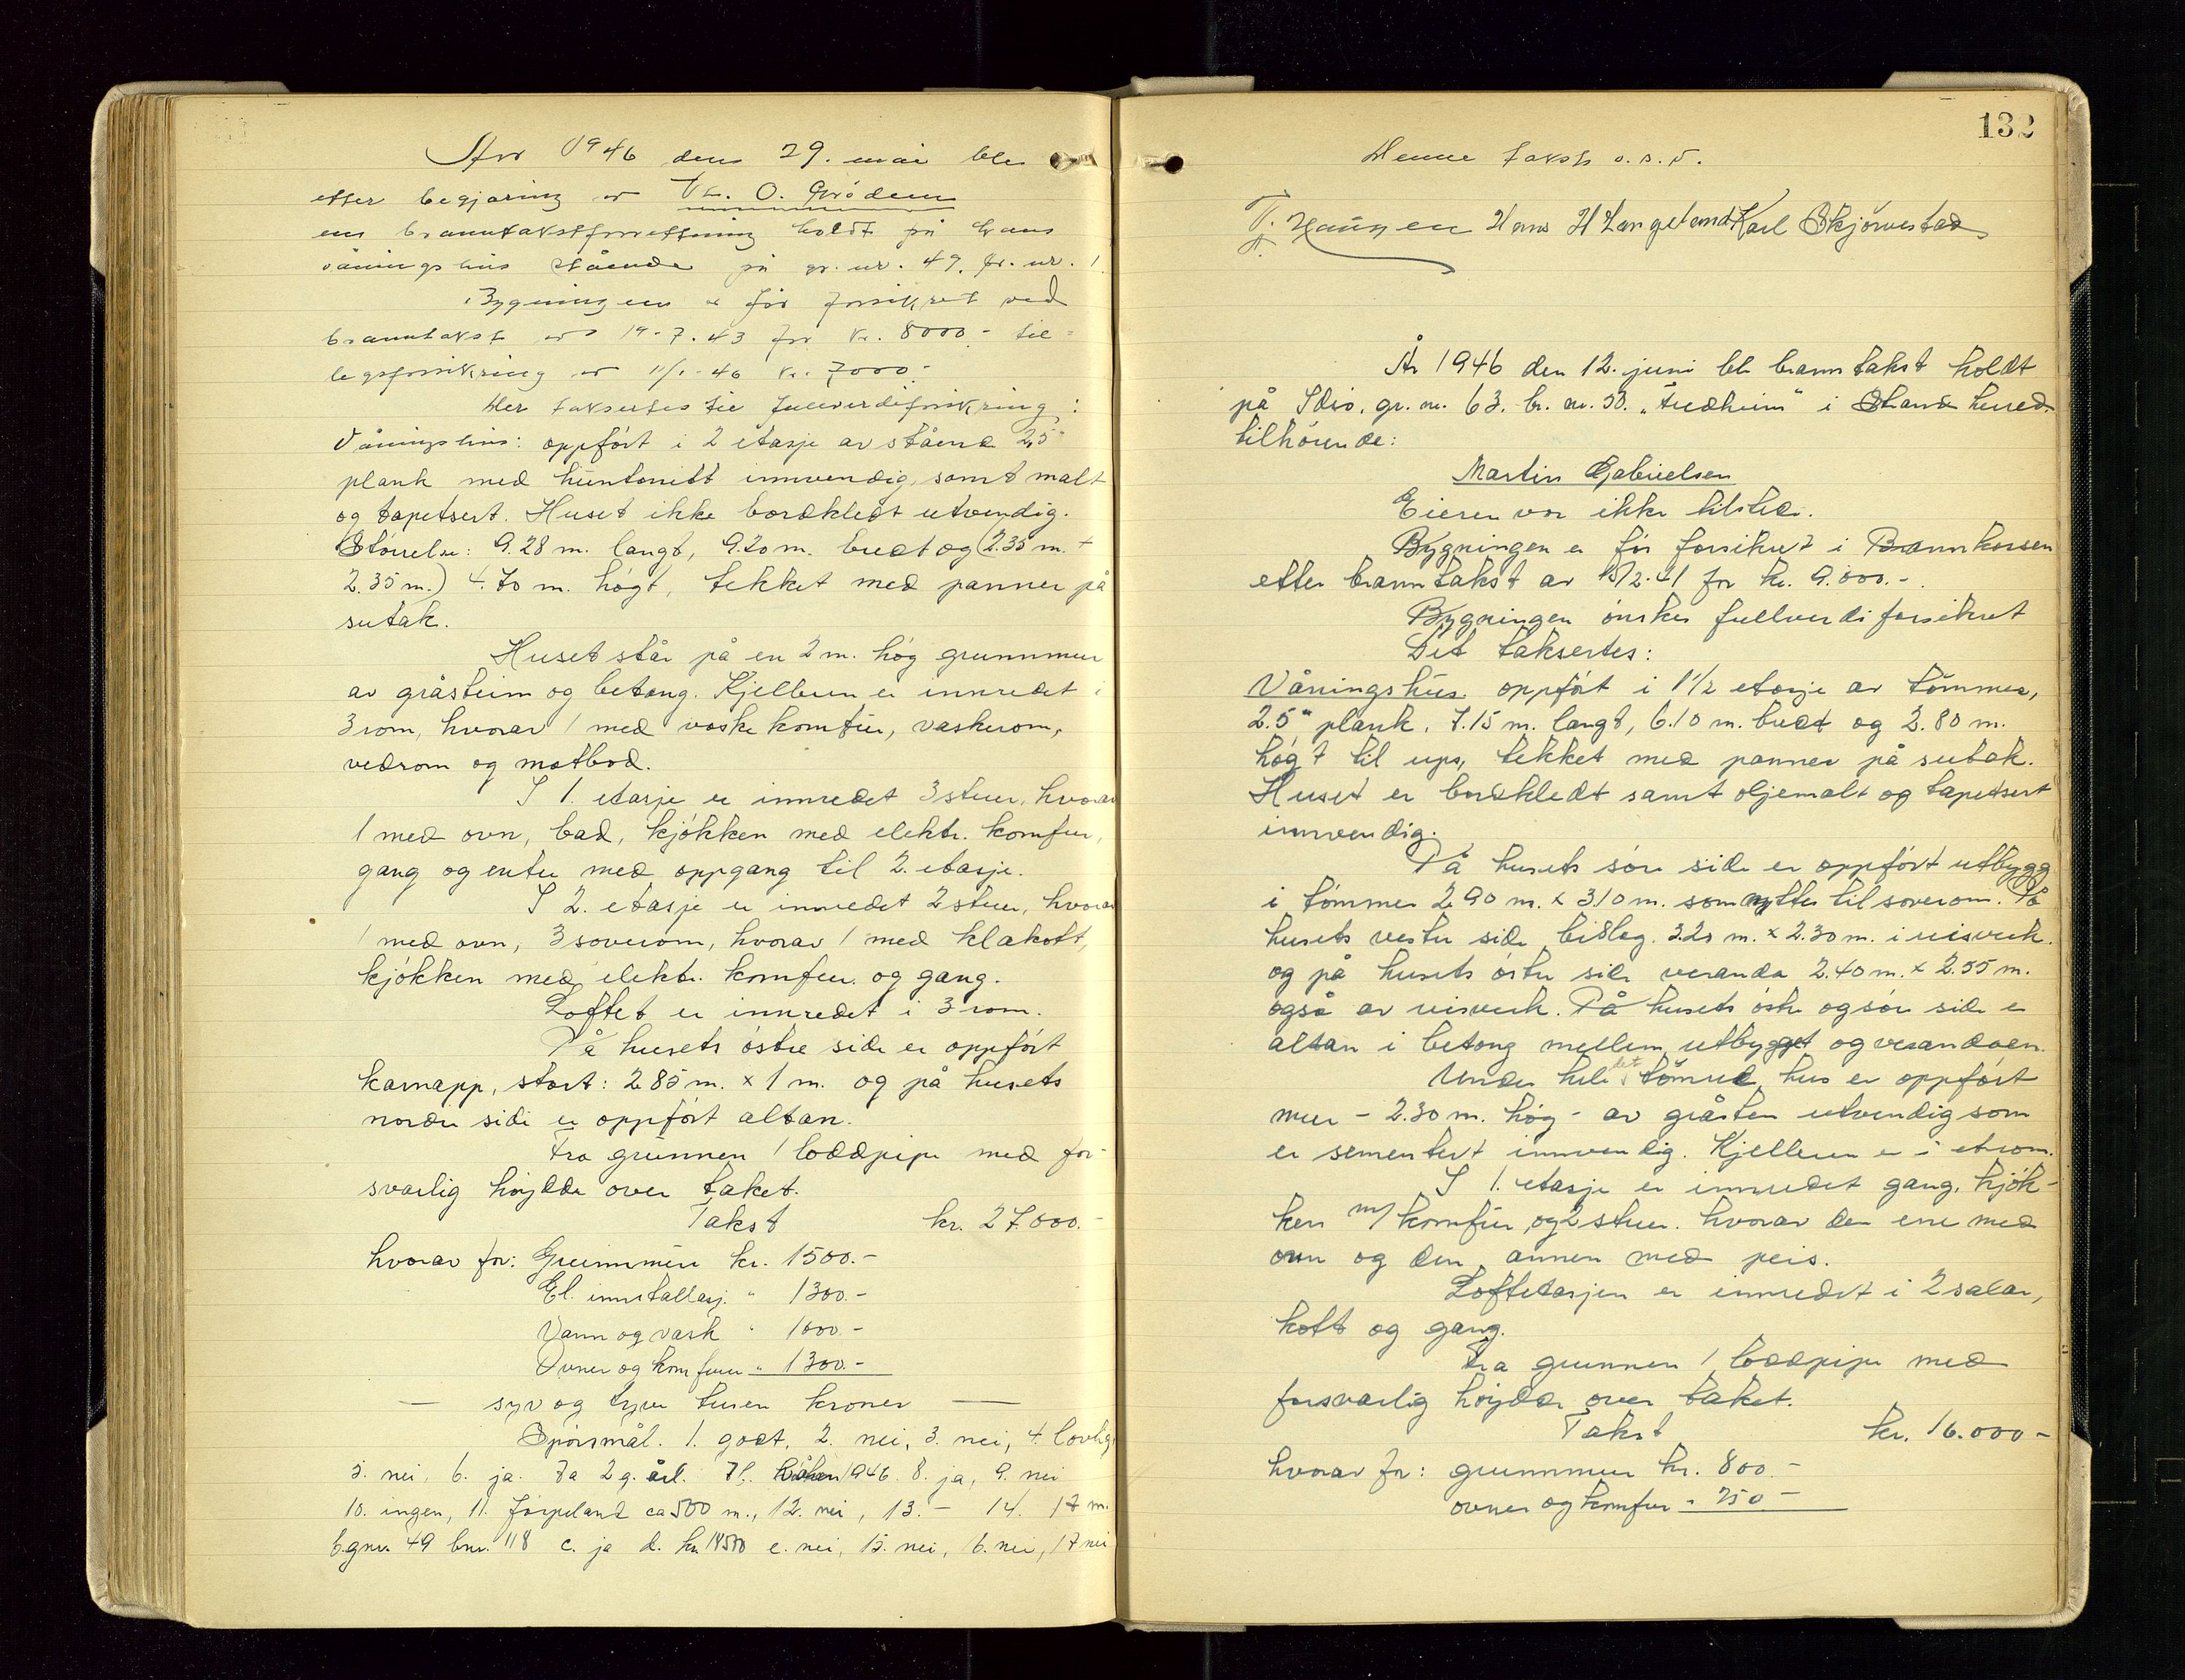 År 1946 den 29. mai ble
etter begjæring av Th. O. Grödem
en branntakstforretning holdt på hans
våningshus stående på gr. nr. 49. br. nr. 1
Bygningen er før forsikret ved
branntakst av 19-7.43 for kr. 8000.- til-
leggsforsikring av 11/1-46 kr. 7000.-
Der taksertes til fullverdiforsikring:
Våningshus: oppført i 2 etasje av stående 2,5"
plank med huntonitt innvendig, samt malt
og tapetsert. Huset ikke bordkledt utvendig.
Størrelse: 9.28 m. langt, 9.20 m. bredt og (2.35 m. +
2.35 m.) 4.70 m. høgt, tekket med panner på
sutak.
Huset står på en 2 m. høg grunnmur
av gråstein og betong. Kjelleren er innredet i
3 rom, hvorav 1 med vaskekomfur, vaskerom,
vedrom og matbod.
I 1. etasje er innredet 3 stuer, hvorav
1 med ovn, bad, kjøkken med elektr. komfur,
gang og entre med oppgang til 2. etasje.
I 2. etasje er innredet 2 stuer, hvorav
1 med ovn, 3 soverom, hvorav 1 med klakott,
kjøkken med elektr. komfur og gang.
Loftet er innredet i 3 rom.
På husets østre side er oppført
karnapp, stort: 2.85 m. x 1 m. og på husets
nordre side er oppført altan.
Fra grunnen 1 loddpipe med for-
svarlig høydde over taket.
Takst kr. 27.000.-
hvorav for: Grunnmur kr. 1500.-
El. innstallasj. " 1300.-
Vann og vask " 1000.-
Ovner og komfurer " 1300.-
— syv og tyve tusen kroner —
Spørsmål. 1. godt, 2. nei, 3. nei, 4. lovlig
5. nei, 6. ja. 7a 2 g. årl. 1946. 8. ja, 9. nei
10. ingen, 11. Jørpeland ca 500 m., 12. nei, 13. - 14. 17 m.
b. gnr. 49 bnr. 118 c. ja d. kr. 18500 e. nei, 15. nei, 16. nei, 17 nei
132
Denne takst o.s.v.
T. Haugen Hans H Langeland Karl Skjørvestad
År 1946 den 12. juni ble branntakst holdt
på Idsø, gr. nr. 63. br. nr. 53. "Fredheim" i Strand herred
tilhørende:
Martin Gabrielsen
Eieren var ikke tilstede.
Bygningen er før forsikret i Brannkassen
etter branntakst av 15/2-41 for kr. 9.000.-.
Bygningen ønskes fullverdiforsikret
Det taksertes:
Våningshus oppført i 1 1/2 etasje av tømmer,
2.5" plank, 7.15 m. langt, 6.10 m. bredt og 2.80 m.
høgt til ups, tekket med panner på sutak.
Huset er bordkledt samt oljemalt og tapetsert
innvendig.
På husets søre side er oppført utbygg
i tømmer 2.90 m. x 3.10 m. som nyttes til soverom. På
husets vestre side bislag. 3.20 m. x 2.30 m. i reisverk.
og på husets østre side veranda 2.40 m. x 2.55 m.
også av reisverk. På husets østre og søre side er
altan i betong mellem utbygget og verandaen.
Under hele det tømrede hus er oppført
mur - 2.30 m. høg - av gråsten utvendig som
er sementert innvendig. Kjelleren er i et rom.
I 1. etasje er innredet gang, kjøk-
ken m/ komfur, og 2 stuer. hvorav den ene med
ovn og den annen med peis.
Loftetasjen er innredet i 2 salar,
kott og gang.
Fra grunnen 1 loddpipe med
forsvarlig høydde over taket.
Takst kr. 16.000-
hvorav for: grunnmur kr. 800.-
ovner og komfur " 750-